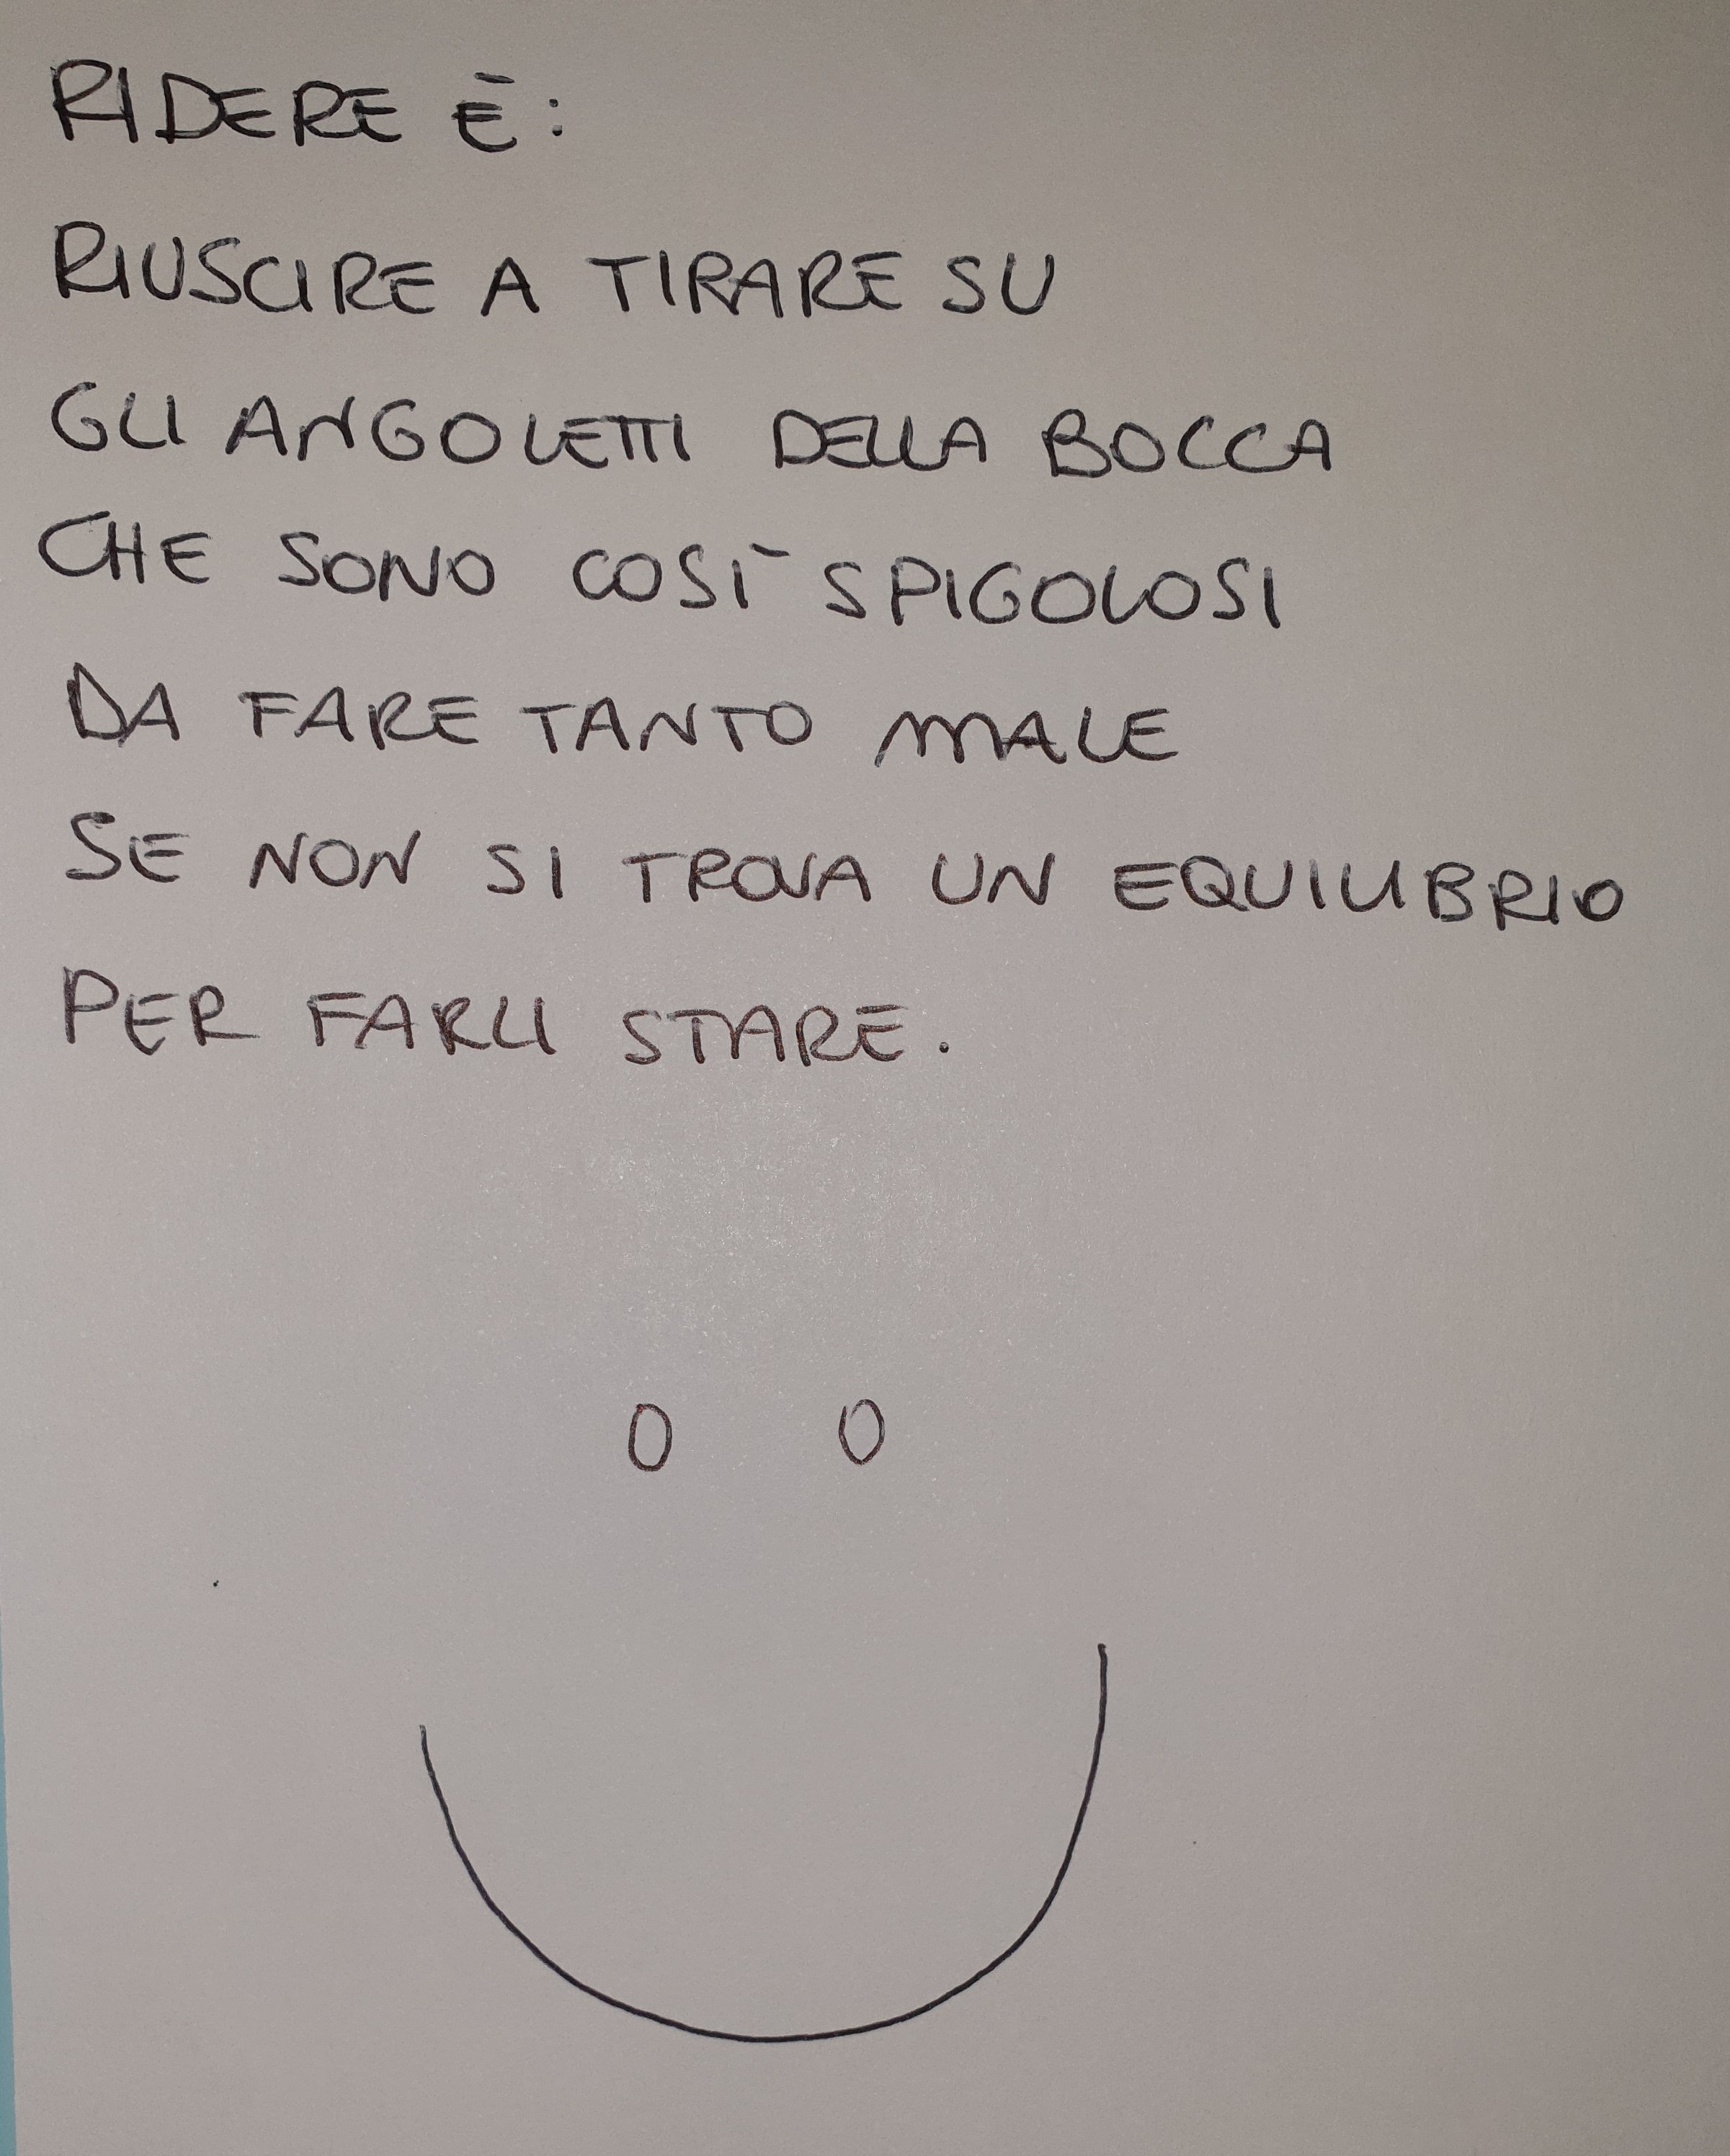 RIDERE È:
RIUSCIRE A TIRARE SU
GLI ANGOLETTI DELLA BOCCA
CHE SONO COSÌ SPIGOLOSI
DA FARE TANTO MALE
SE NON SI TROVA UN EQUILIBRIO
PER FARLI STARE.